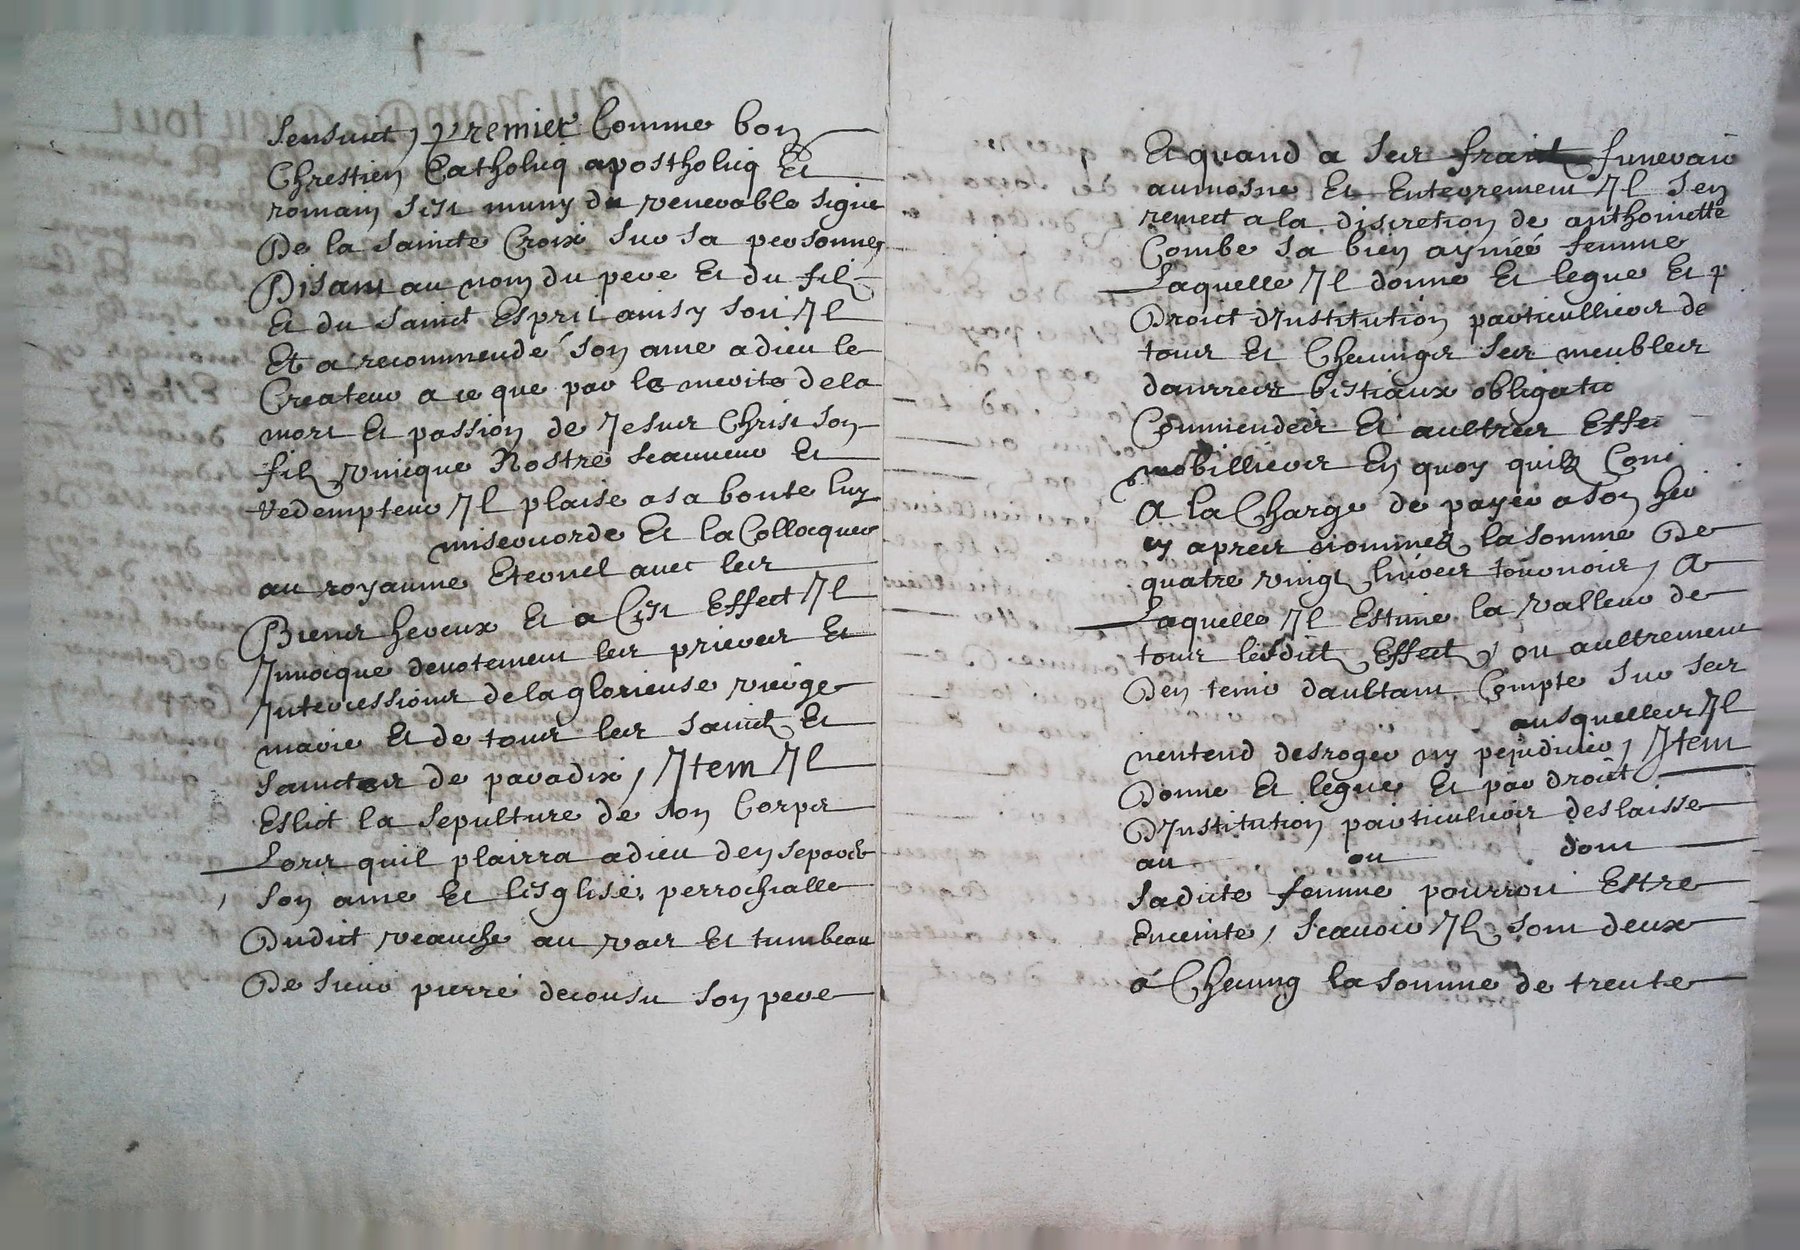 sensuict, premier Comme bon
Chrestien Catholicq apostholicq Et
romain sest muny du venerable signe
De la saincte Croix sur sa personne
Disant au nom du pere Et du filz
Et du sainct Esprit ainsy soit Il
Et a recommende son ame a dieu le
Createur a ce que par le merite de la
mort Et passion de Jesus Christ son
filz unicque Nostre seauveur Et
redempteur Il plaise a sa bonte luy
misericorde Et la Collocquer
au royaume Eternel avec les
Biens heureux Et a Cest Effect Il
Invocque devotement les prieres Et
Intercessions de la glorieuse vierge
marie Et de tous les sainctz Et
sainctes de paradix, Item Il
Eslict la sepulture de son Corps
Lors quil plairra a dieu den separer
son ame En lesglise perrochialle
Dudict veauche au vas Et tumbeau
De sieur pierre decousu son pere
Et quand a ses funerail
aumosne Et Enterrement Il sen
remect a la discretion de anthoinette
Combe sa bien aymée femme
Laquelle Il donne Et legue Et p
Droict dInstitution particullier de
tous Et Chacungs ses meubles
danrrees bistiaux obligatio
Commendes Et aultres Effe
mobilliers En quoy quilz Consi
A la Charge de payer a son her
cy apres nommez la somme De
quatre vingt livres tournois, A
Laquelle Il Estime la valleur de
tous lesdictz Effectz, ou aultrement
Den tenir daultant Compte sur ses
ausquelles Il
nentend desroger ny prejudicier, Item
Donne Et legue Et par droict
DInstitution particulier deslaisse
au ou dont
sadicte femme pourroit Estre
Enceinte, scavoir Ilz sont deux
a Chacung la somme de trente